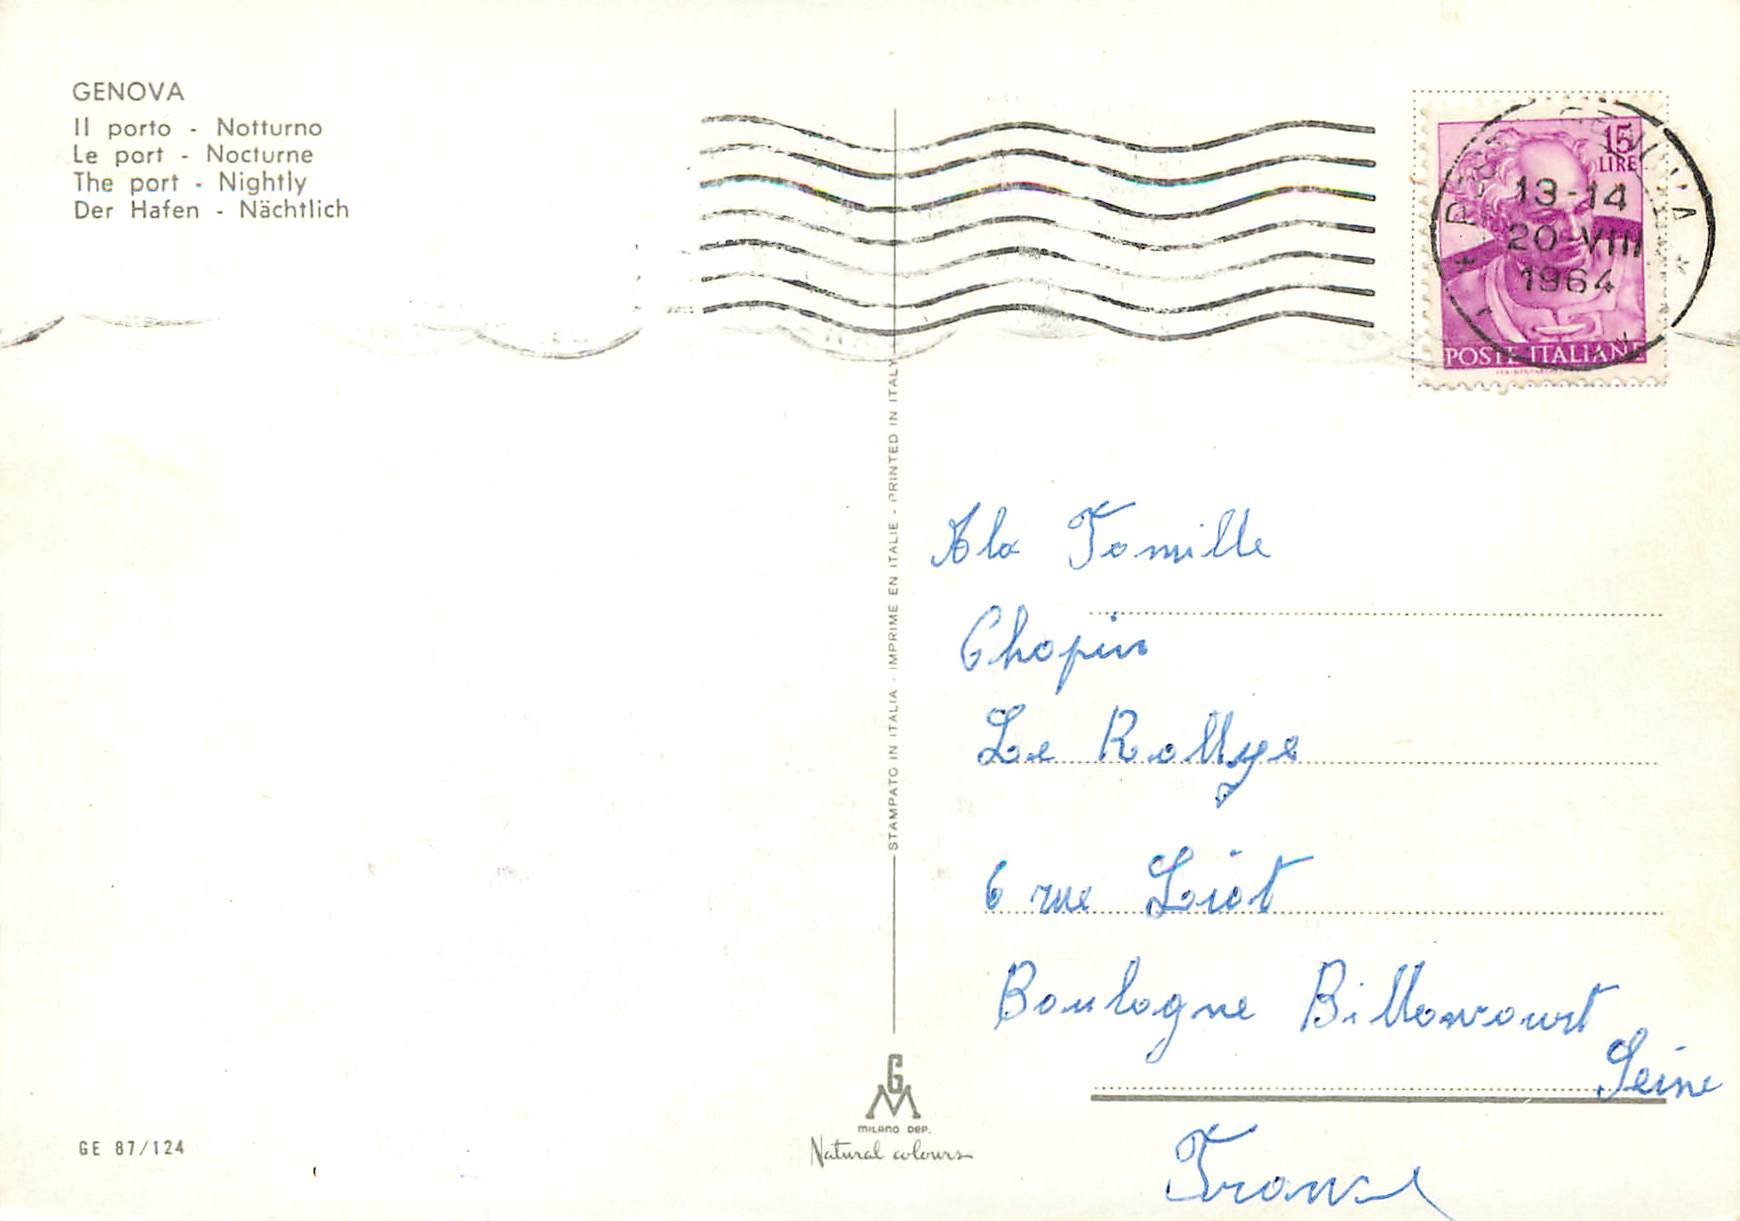 GENOVA
Il porto - Notturno
Le port - Nocturne
The port - Nightly
Der Hafen - Nächtlich
15
LIRE
13-14
20-VIII
1964
POSTE ITALIANE
STAMPATO IN ITALIA - IMPRIME EN ITALIE - PRINTED IN ITALY
A la Famille
Chopin
Le Rallye
6 rue Liot
Boulogne Billancourt
Seine
France
GM
MILANO DEP.
Natural colours
GE 87/124